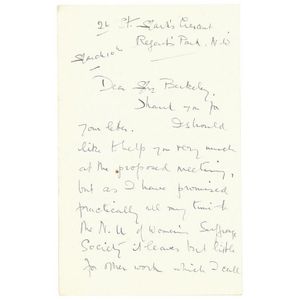 24 St. Mark's Crescent
Regent's Park. N.W.
Dear Mrs Berkeley,
Thank you for
your letter. I should
like to help you very much
at the proposed meeting,
but as I have promised
practically all my time to
the N.U of Women's Suffrage
Society it leaves but little
for other work which I call